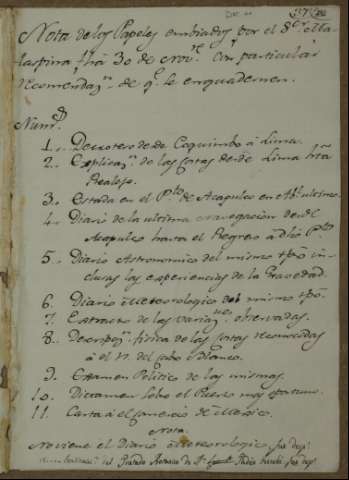 Nota de los Papeles embiados por el S.or Ma-
laspina, fha 30 de Nov.re con particular
recomendaz.n de q.e se enquadernen.
Num.s
1.. Derrotero desde Coquimbo á Lima.
2.. Explicaz.n de las Costas desde Lima hta
Realejo.
3.. Estada en el P.to de Acapulco en Ab.l ultimo.
4.. Diario de la ultima navegacion desde
Acapulco hasta el Regreso a dho P.to
5.. Diario Astronomico del mismo tpo in-
clusas las experiencias de la Gravedad.
6. Diario Meteorologico del mismo tpo.
7. Extracto de las variaz.nes observadas.
8.. Descripz.n fisica de las Costas reconocidas
á el N. del Cabo Blanco.
9. Examen Politico de las mismas.
10. Dictamen sobre el Puerto mas oportuno.
11. Carta á el Comercio de Mexico.
Nota.
No viene el Diario Meteorologico,
del Tratado